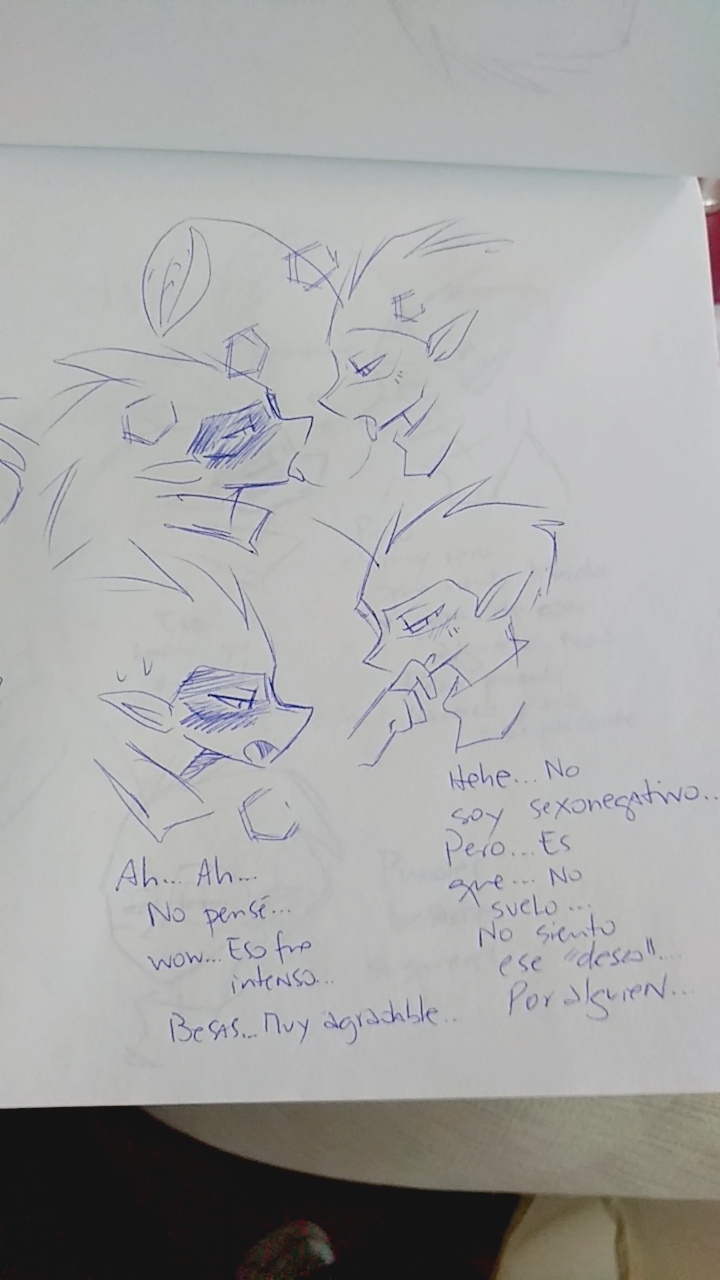 Ah... Ah...
No pensé...
wow... Eso fue
intenso...
Besas... Muy agradable..
Hehe... No
soy sexonegativo...
Pero... Es
que... No
suelo...
No siento
ese "deseo"...
Por alguien...